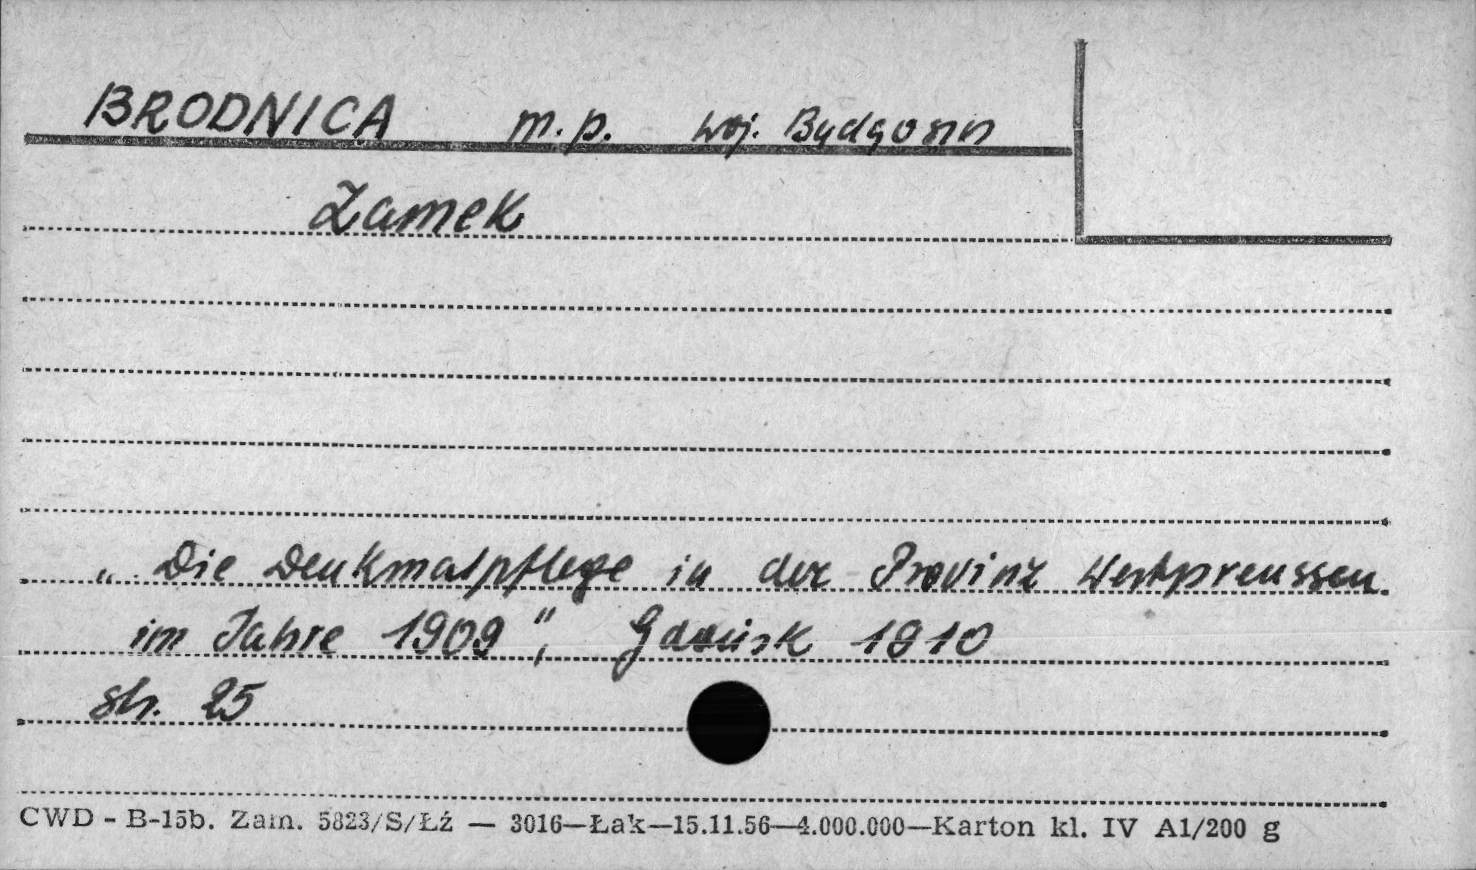 BRODNICA m.p. woj. Bydgoszcz
Zamek
„Die Denkmalpflege in der Provinz Westpreussen
im Jahre 1909", Gdańsk 1910
str. 25
CWD - B-15b. Zam. 5823/S/Łź — 3016—Łak—15.11.56—4.000.000—Karton kl. IV A1/200 g